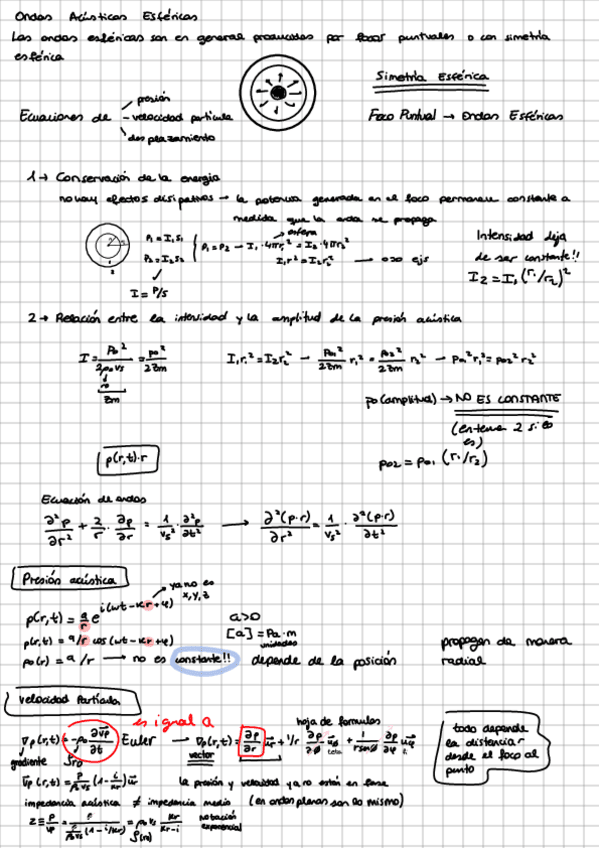 Ondas Acústicas Esféricas
Las ondas esféricas son en general producidas por focos puntuales o con simetría
esférica
Simetría Esférica
presión
Ecuaciones de - velocidad partícula
desplazamiento
Foco Puntual → Ondas Esféricas
1 → Conservación de la energía
no hay efectos disipativos → la potencia generada en el foco permanece constante a
medida que la onda se propaga
esfera
P₁ = I₁S₁
P₂ = I₂S₂
P₁ = P₂ → I₁ · 4πr₁² = I₂ · 4πr₂²
I₁r₁² = I₂r₂² → ojo ejs
I = P/S
Intensidad deja
de ser constante!!
I₂ = I₁ (r₁/r₂)²
2 → Relación entre la intensidad y la amplitud de la presión acústica
I = po²/2ρo vs = po²/2Zm
ro
Zm
I₁r₁² = I₂r₂² → po₁²/2Zm r₁² = po₂²/2Zm r₂² → po₁²r₁² = po₂²r₂²
po (amplitud) → NO ES CONSTANTE
po₂ = po₁ (r₁/r₂)
p(r,t)·r
Ecuación de ondas
∂²p/∂r² + 2/r · ∂p/∂r = 1/vs² · ∂²p/∂t² → ∂²(p·r)/∂r² = 1/vs² · ∂²(p·r)/∂t²
Presión acústica
ya no es
x, y, z
p(r,t) = a/r e^i(ωt - kr + φ)
p(r,t) = a/r cos (ωt - kr + φ)
po(r) = a/r → no es constante!! depende de la posición
a>0
[a] = Pa·m
unidades
propagan de manera
radial
Velocidad Partícula
es igual a
hoja de formulas
∇p(r,t) = -ρo ∂vp/∂t Euler → ∇p(r,t) = ∂p/∂r ur + 1/r ∂p/∂θ uθ + 1/r senθ ∂p/∂φ uφ
gradiente
ro
vector
todo depende
la distancia r
desde el foco al
punto
vp(r,t) = p/ρo vs (1 - i/kr) ur
la presión y velocidad ya no están en fase
impedancia acústica ≠ impedancia medio (en ondas planas son lo mismo)
Z ≡ p/vp = p/(p/ρo vs (1 - i/kr)) = ρo vs kr/kr-i
notación
exponencial